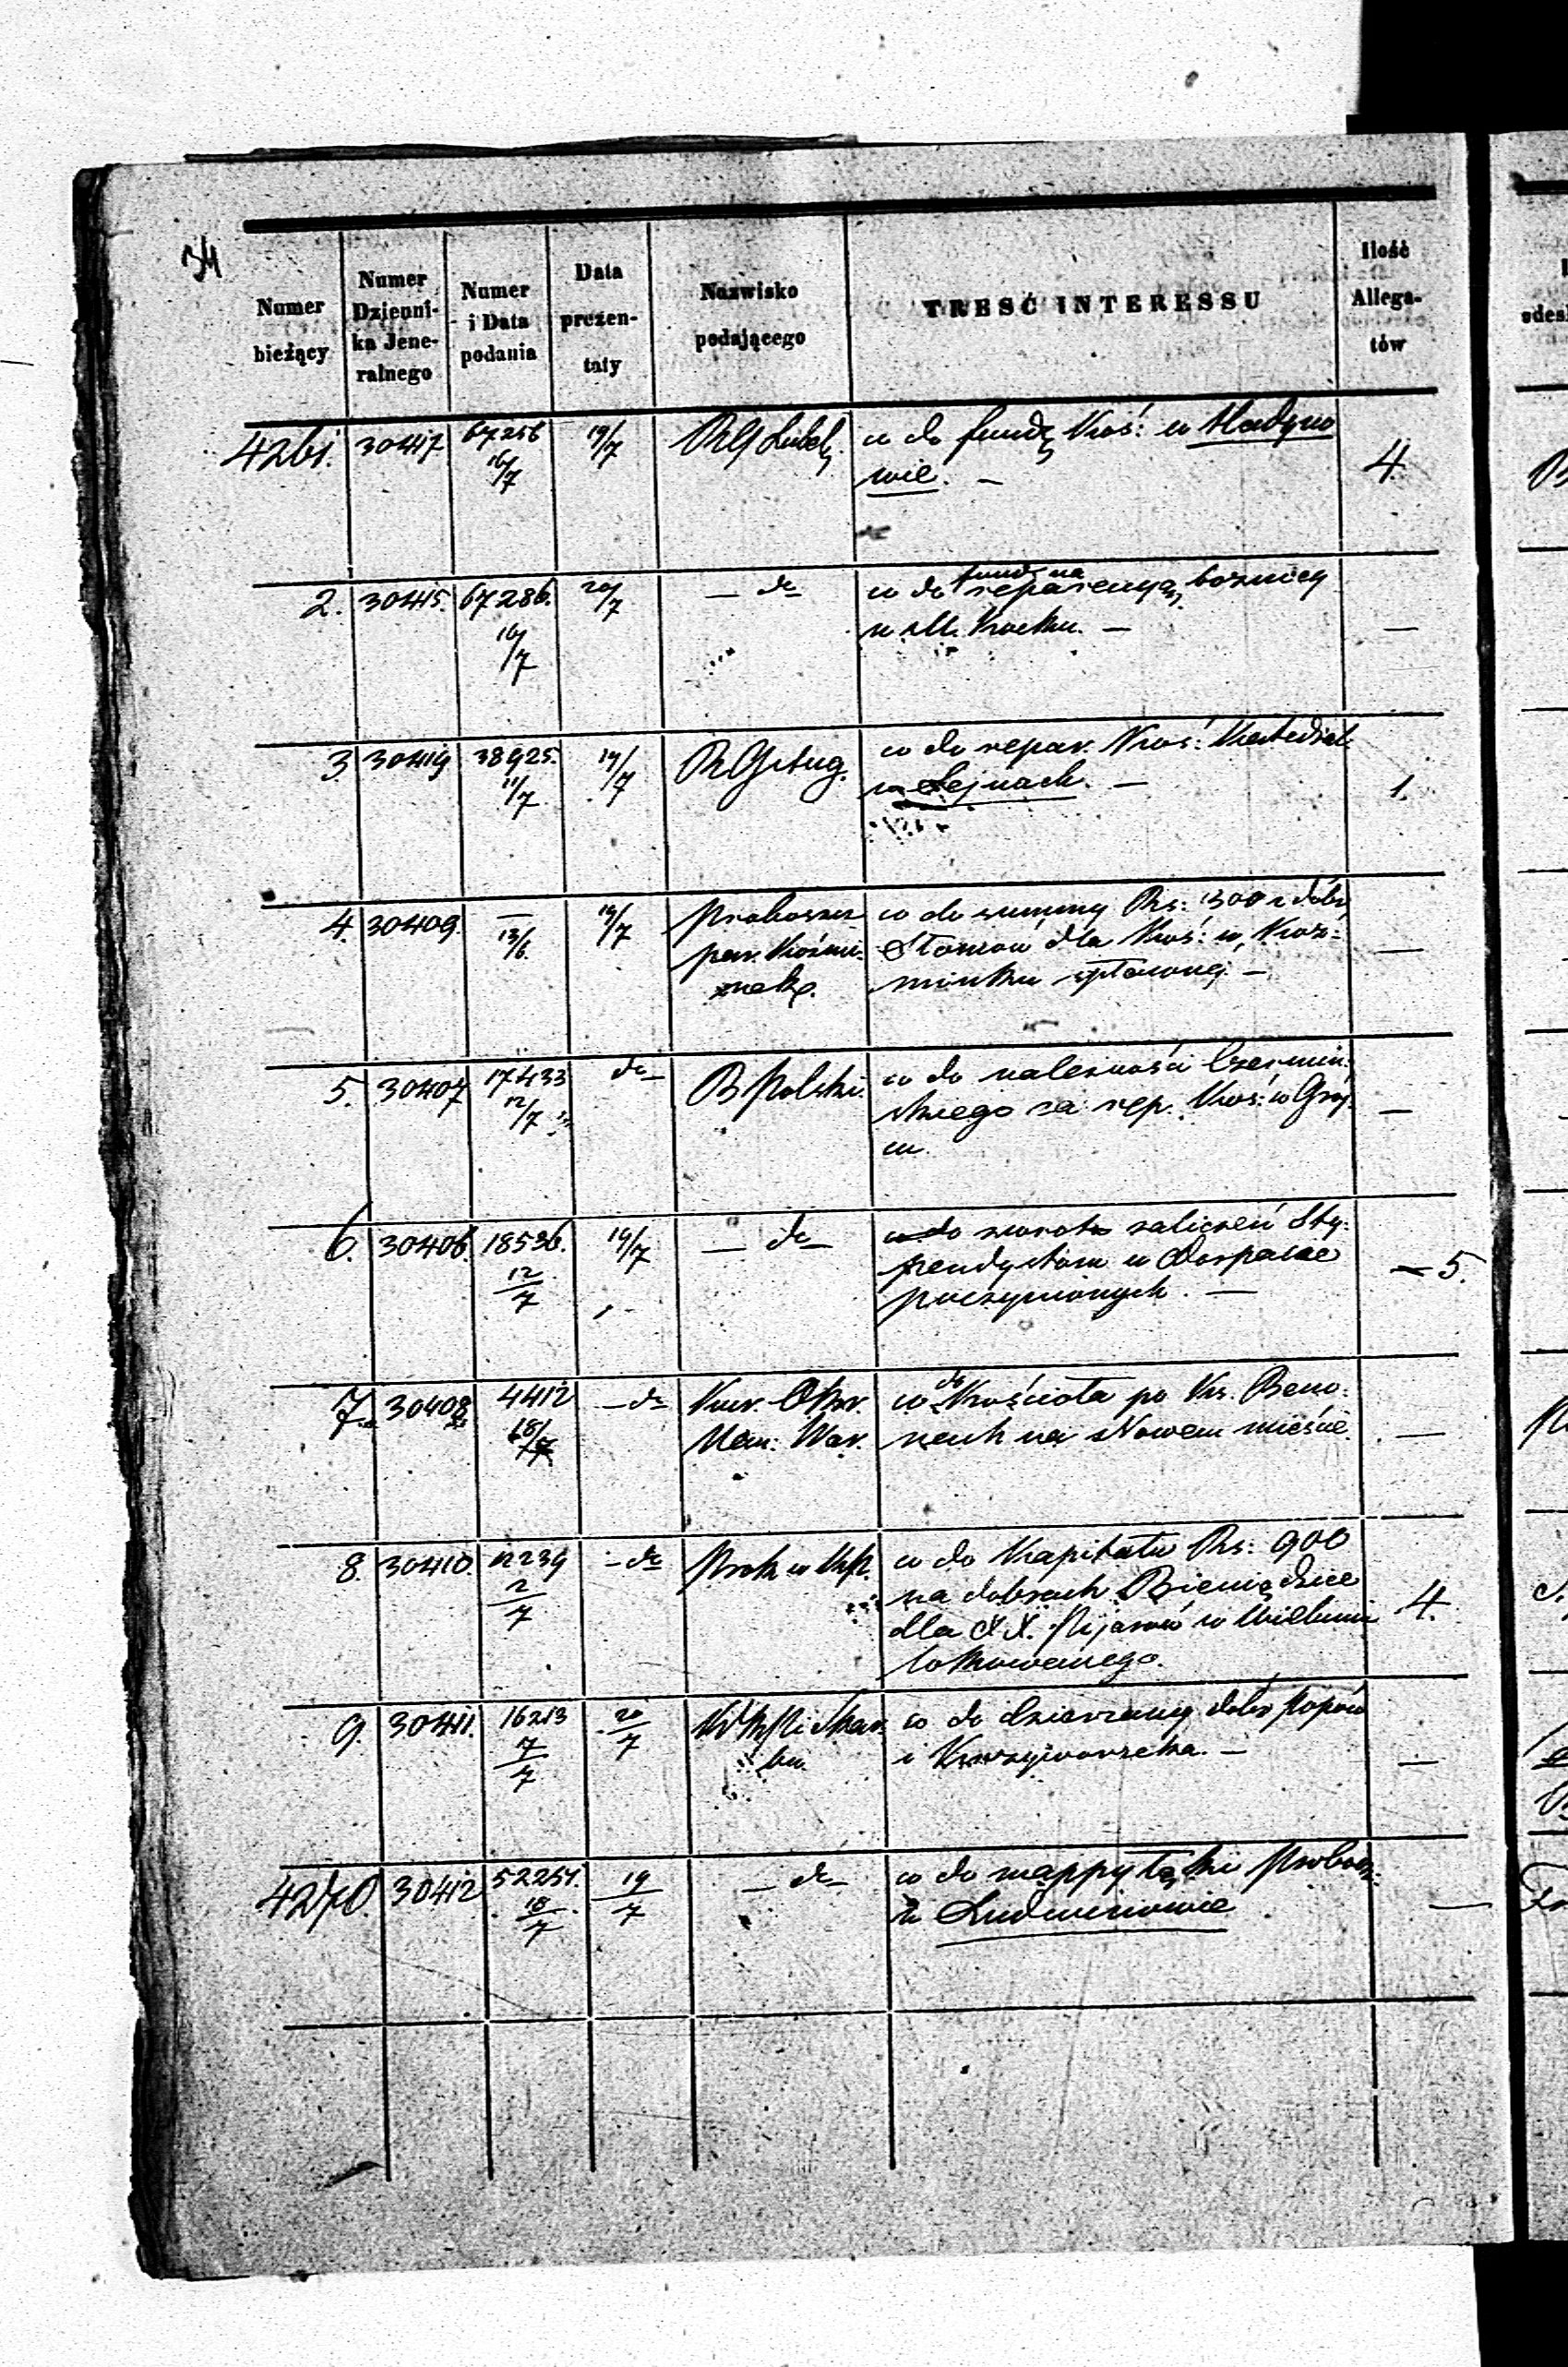 34
Numer bieżący
Numer Dzienni-ka Jene-ralnego
Numer i Data podania
Data prezen-taty
Nazwisko podającego
TREŚĆ INTERESSU
Ilość Allega-tów
4261. 30417 67256 16/7 19/7 RG Lubel. co do fund. Koś: w Hadyno
wie. — 4.
2. 30415. 67286. 16/7 20/7 — do co do fund. na reparacyą bożnicy
w M. Kocku. — —
3. 30419 38925. 11/7 19/7 RG Aug. co do repar. Koś: Katedral.
w Sejnach. — 1.
4. 30409. — 13/6 19/7 Proboszcz co do summy Rs: 1300 z dóbr
par. Koźmi- dla Koś: w Koź-
minku — —
5. 30407 17433 12/7 do B Polski. co do należności Czermiń-
skiego za rep. Koś: w Grój-
cu. —
6. 30406. 18536. 12/7 19/7 — do co do zwrotu zaliczeń Sty-
pendystom w Dorpacie
poczynionych. — — 5.
7. 30408 4412 18/7 — do Kur. Okr. co do Kościoła po Ks. Beno-
Nau: War. nach na Nowem mieście. —
8. 30410. 12239 2/7 — do Prok w KP. co do Kapitału Rs: 900
na dobrach Bieniądzice
dla XX. Pijarów w Wieluniu
lokowanego. 4.
9. 30411. 16213 7/7 20/7 Skar- co do dzierżawy dóbr Popów
bu. i Krzyworzeka. — —
4270. 30412 52251. 18/7 19/7 — do co do mappy łąki Probosz:
w Ludwinowie —